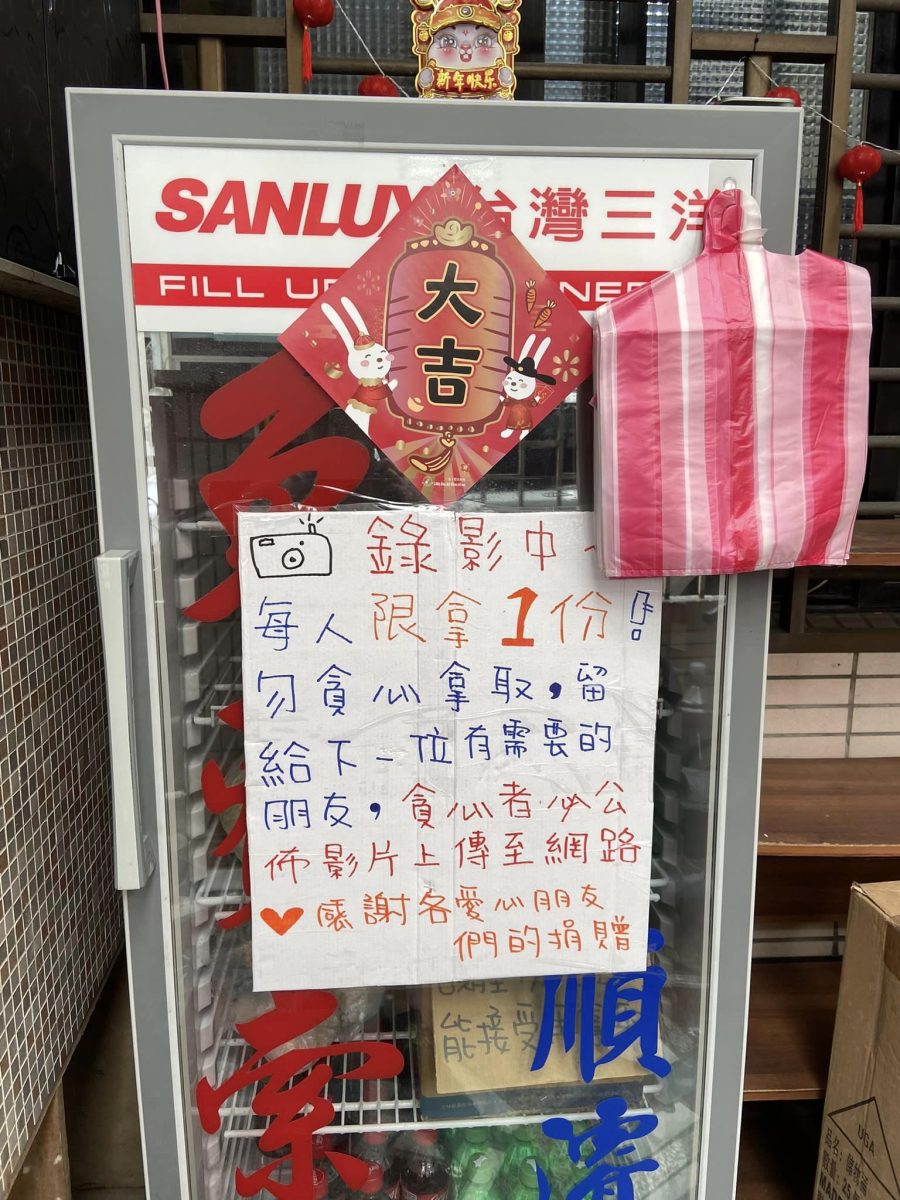 新年快乐
SANLUX 台灣三洋
FILL UP
大
吉
錄影中
每人限拿1份!
勿貪心拿取,留
給下一位有需要的
朋友,貪心者必公
佈影片上傳至網路
♥感謝各愛心朋友
們的捐贈
能接受
索
順
UGA
品名:
數量:
MA